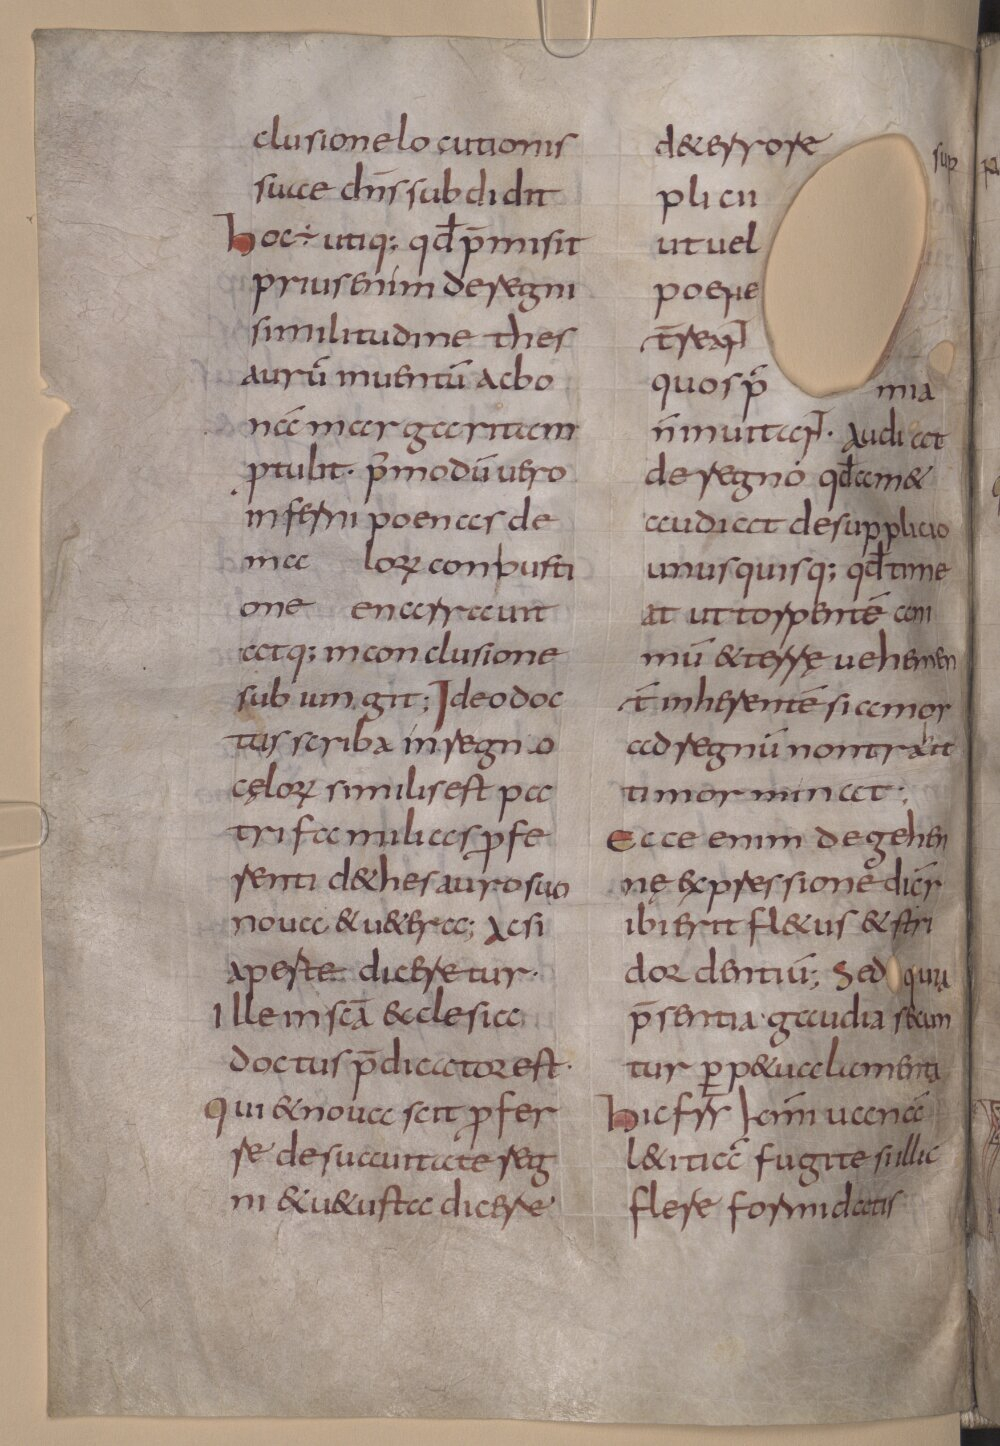 clusione locutionis
suae chīs subdidit
hoc ÷ utiq; qđ p̄misit
prius enim de regni
similitudine thes
aurū inuentū ac bo
nā margaritam
ptulit. p̄modū uero
inferni poenas de
ma lorꝝ conbusti
one enarrauit
atq; in conclusione
subiungit; Ideo doc
tus scriba in regno
cęlorꝝ similis est pa
tri familias profe
renti d& hesauro suo
noua & u&era; Ac si
aperte diceretur.
Ille in scā ecclesia
doctus p̄dicator est.
Qui & noua scit profer
re de suauitate reg
ni & u&usta dicere
d& errore sup
plicii
ut uel
poene
t̄reaɳ̄t
quos p̄ mia
n̄ inuitaɳ̄t. Audiat
de regno qđ am&
audiat de supplicio
unusquisq; qđ time
at ut torpentē ani
mū & terrę uehemen
t̄ inherentē si amor
ad regnū non trahit
timor minat;
Ecce enim de gehen
nę expressione dicīr
ibi erit fl&us & stri
dor dentiū; Sed quia
p̄sentia gaudia secun
tur perp&ua lamenta
Hic frr kmi uanā
l&itiā fugite si illic
flere formidatis